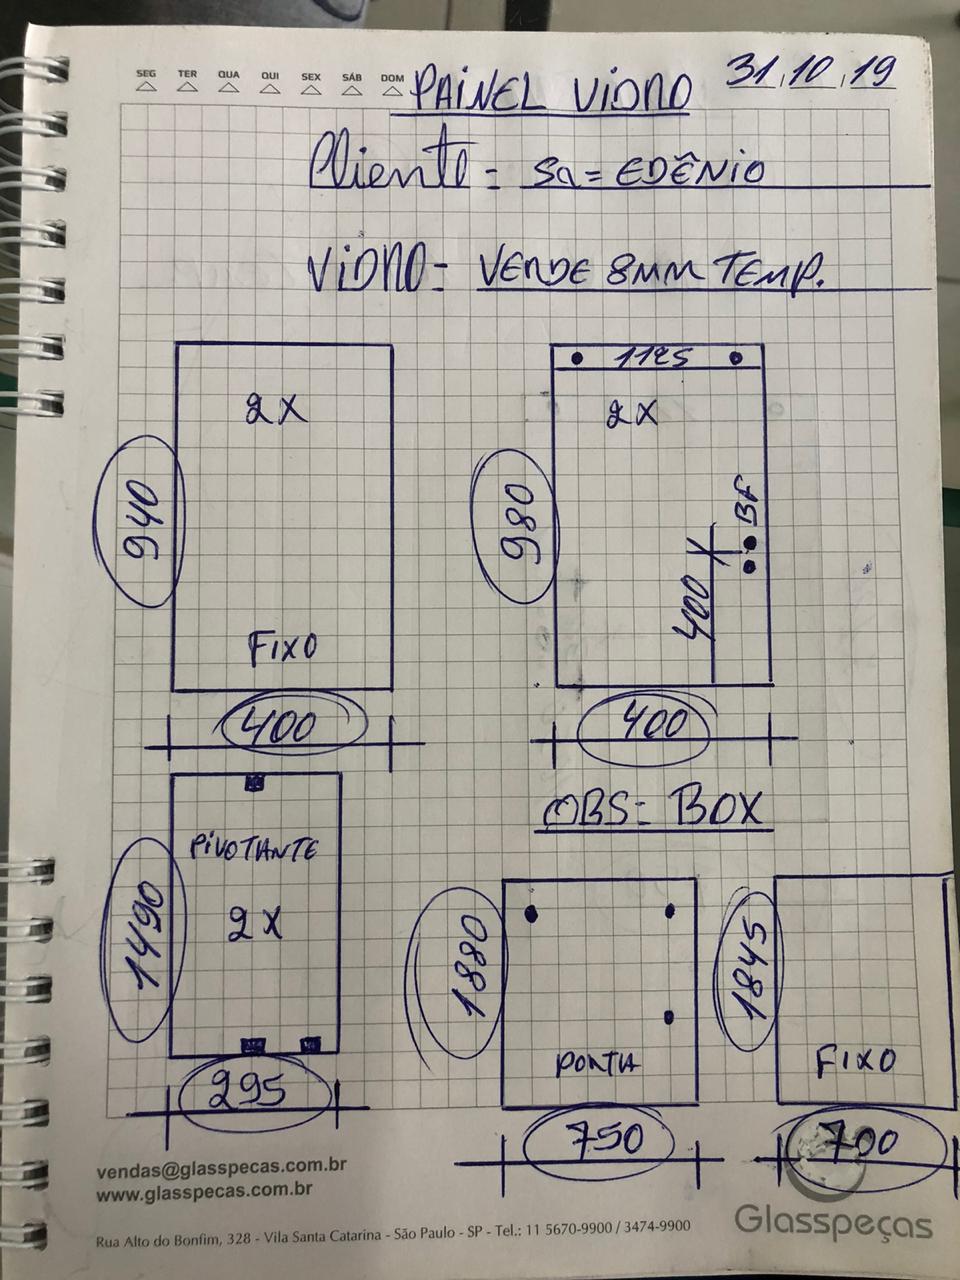 SEG TER QUA QUI SEX SÁB DOM
PAINEL VIDRO 31,10,19
Cliente = Sa = EDÊNIO
VIDRO = VERDE 8MM TEMP.
2X
940
FIXO
400
1125
2X
980
BF
400
400
PIVOTANTE
2X
1490
295
OBS= BOX
1880
PORTA
750
1845
FIXO
700
vendas@glasspecas.com.br
www.glasspecas.com.br
Glasspeças
Rua Alto do Bonfim, 328 - Vila Santa Catarina - São Paulo - SP - Tel.: 11 5670-9900 / 3474-9900